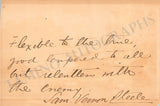 Flexible to the true,
good opposed to all
but relentless with
the enemy
Sam Vernon Steele